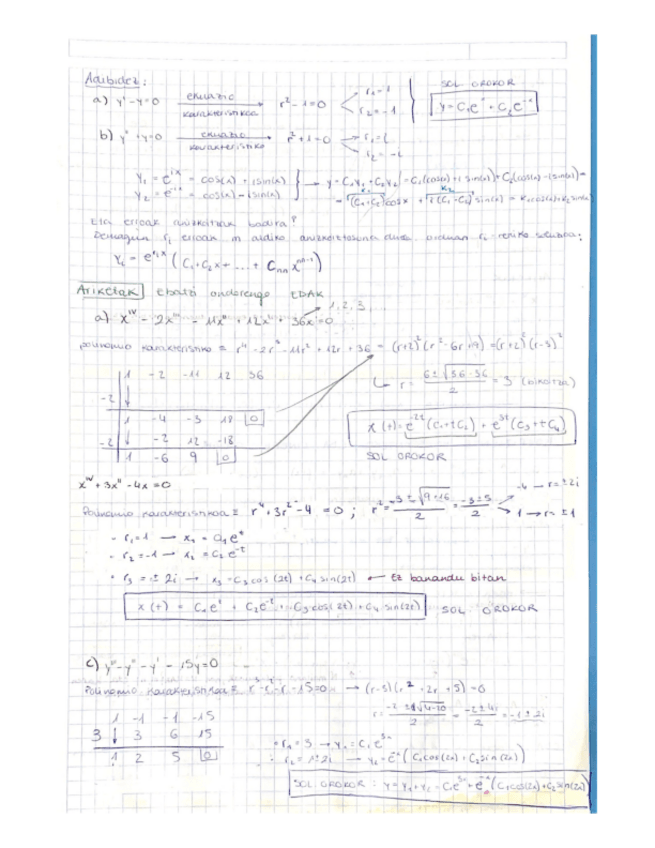 Adibidez:
a) y'' - y = 0 ekuazio karakteristikoa → r² - 1 = 0 r₁ = 1 r₂ = -1 SOL OROKOR y = C₁eˣ + C₂e⁻ˣ
b) y'' + y = 0 ekuazio karakteristiko → r² + 1 = 0 → r₁ = i → r₂ = -i
y₁ = e^{ix} = cos(x) + i sin(x) → y = C₁y₁ + C₂y₂ = C₁(cos(x) + i sin(x)) + C₂(cos(x) - i sin(x)) =
y₂ = e^{-ix} = cos(x) - i sin(x) = (C₁ + C₂) cos x + i(C₁ - C₂) sin(x) = K₁cos(x) + K₂ sin(x)
Eta erroak anizkoitzak badira?
Demagun r₁ erroak m aldiko anizkoiztasuna duela, orduan
Yᵢ = e^{rᵢx} (C₁ + C₂x + ... + Cₘ₋₁ x^{m-1})
Ariketak ebatzi ondorengo EDAK
1, 2, 3
a) x^{IV} - 2x''' - 11x'' + 12x' + 36x = 0
polinomio karakteristikoa = r⁴ - 2r³ - 11r² + 12r + 36 = (r+2)²(r² - 6r + 9) = (r+2)²(r-3)²
1 -2 -11 12 36
r = 6 ± √36-36 / 2 = 3 (bikoitza)
-2 ↓
1 -4 -3 18 0
x(t) = e^{-2t}(C₁ + tC₂) + e^{3t}(C₃ + tC₄)
-2 -2 12 -18
1 -6 9 0
SOL OROKOR
x^{IV} + 3x'' - 4x = 0
Polinomio karakteristikoa = r⁴ + 3r² - 4 = 0 ; r² = -3 ± √9+16 / 2 = -3 ± 5 / 2 -4 → r = ±2i 1 → r = ±1
- r₁ = 1 → x₁ = C₁eᵗ
- r₂ = -1 → x₂ = C₂e⁻ᵗ
• r₃ = ± 2i → x₃ = C₃cos(2t) + C₄ sin(2t) ← Ez banandu bitan
x(t) = C₁eᵗ + C₂e⁻ᵗ + C₃cos(2t) + C₄ sin(2t) SOL OROKOR
c) y''' - y'' - y' - 15y = 0
Polinomio karakteristikoa = r³ - r² - r - 15 = 0 → (r-3)(r² + 2r + 5) = 0
1 -1 -1 -15
r = -2 ± √4-20 / 2 = -2 ± 4i / 2 = -1 ± 2i
3 ↓ 3 6 15
1 2 5 0
• r₁ = 3 → y₁ = C₁e³ˣ
• r₂ = -1 ± 2i → y₂ = e⁻ˣ(C₁cos(2x) + C₂sin(2x))
SOL OROKOR : y = y₁ + y₂ = C₁e³ˣ + e⁻ˣ(C₂cos(2x) + C₃sin(2x))